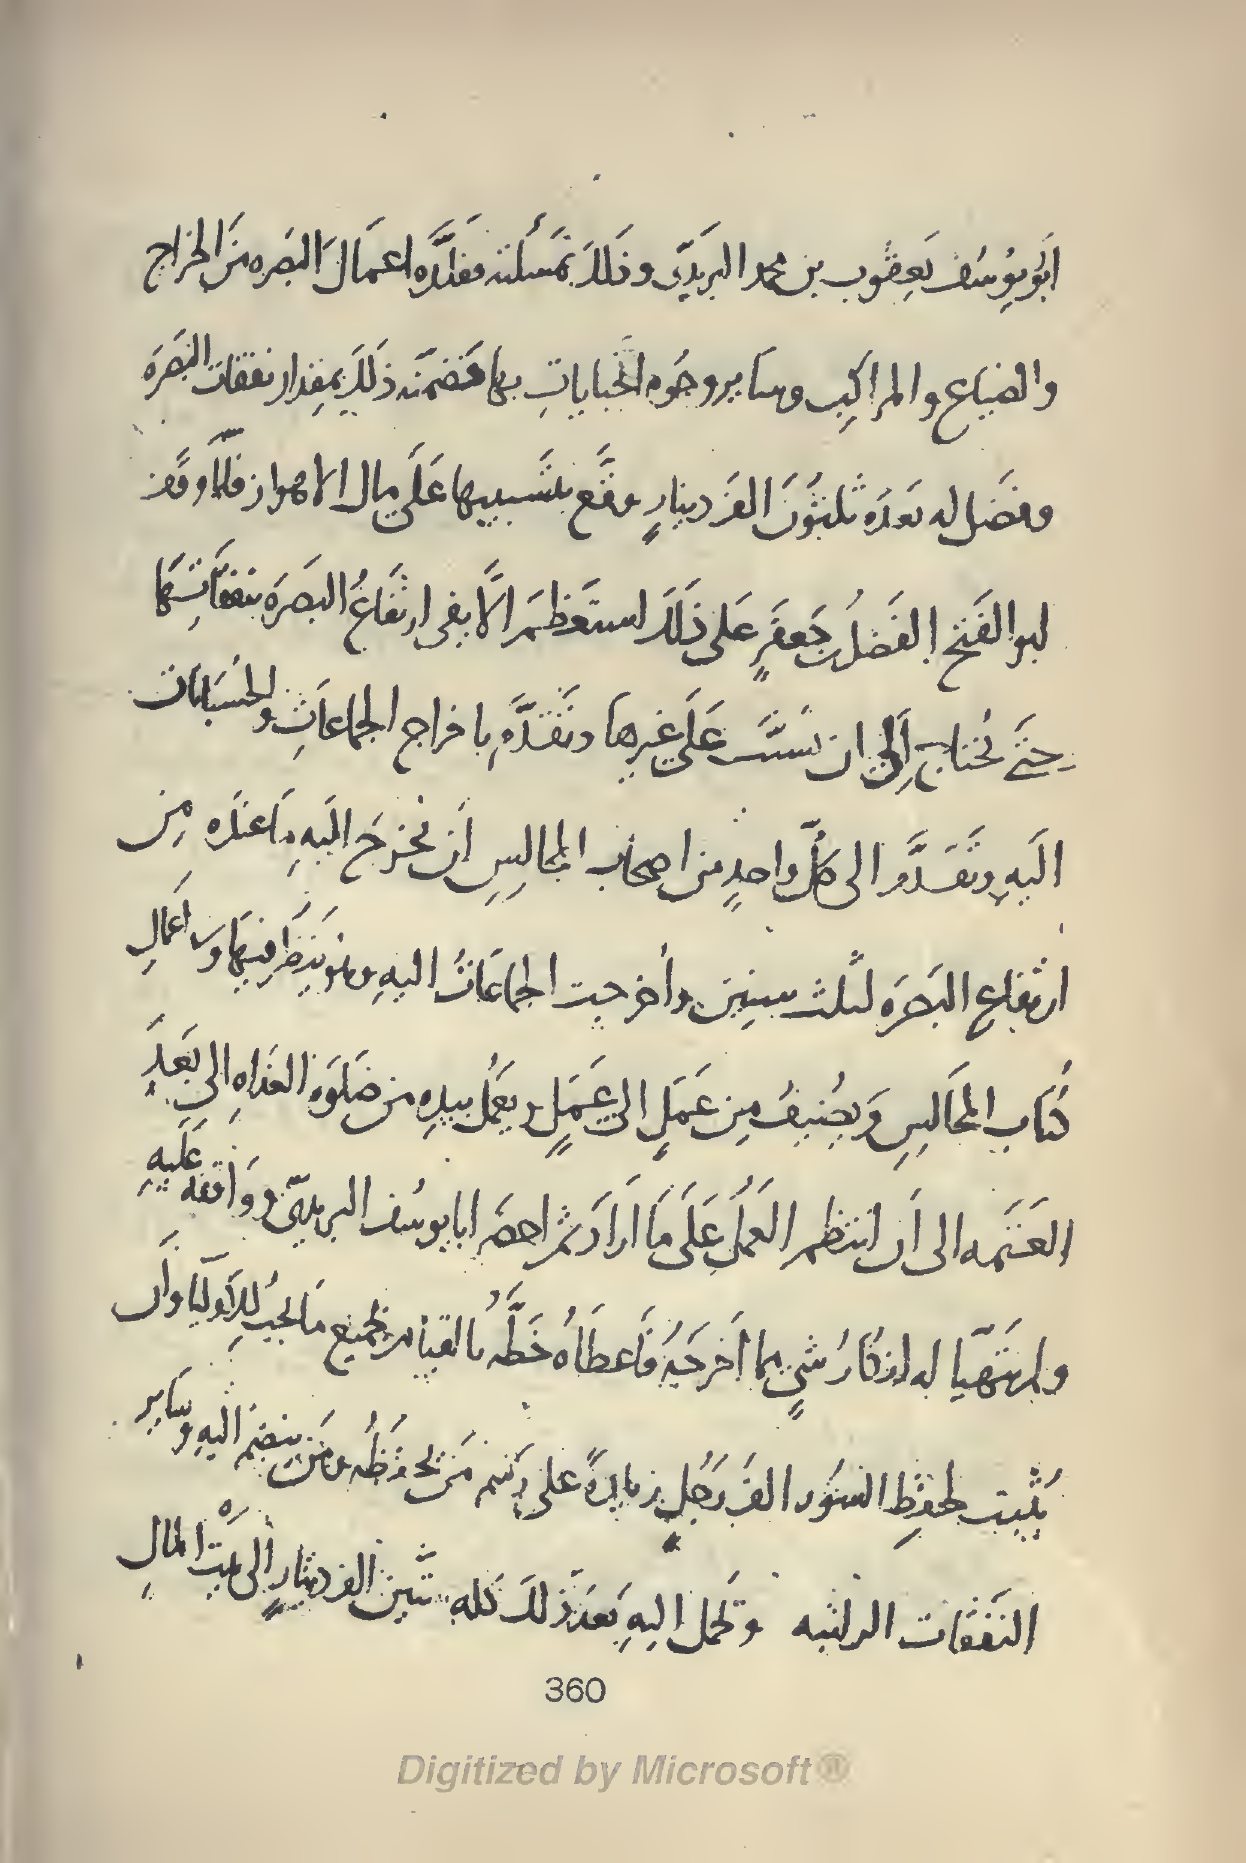 ابُو يوُسُف يَعقُوب بن محمد البَريدّى وذَلكَ بمَسئَلته فقلَّده اعمَالَ البَصَره منَ الخراج
والضياع والمراكِب وسَاير وجُوه الجباياتِ بها فضمنّه ذَلكَ بمِقدار نفقات البَصَرَة
وفَضَل له بَعدَه ثلثُونَ الفَ دينارٍ وقَّع بتَسبيبها عَلَى مال الاهواز فلمّا وقَف
ابو الفَتح الفَضلُ بن جَعفَرٍ عَلى ذَلكَ استَعظمَ الَّا يفى ارتفَاعُ البَصرَة بنفقاتِهَا
حتّى يُحتاج إلى ان يُسَبَّب عَلَى غيرِها وتَقَدَّم باخراج الجماعَاتِ والحُسبانات
اليَهِ وتَقَدَّم الى كلّ واحدٍ من اصحاب المجالِسِ أن يُخرجَ اليَهِ مَا عندَه مِن
ارتفاع البَصرَه لثلث سِنينَ وأخرجت الجماعَاتُ اليهِ وهُو يَنظرُ فيهَا وسَ اعمالِ
كُتاب المجَالِسِ وَيُضِيفُ مِن عَمَلٍ الى عَمَلٍ ويعَملُ بيدِه من صَلوَه الغدَاهِ الى بَعَدِ
العَتَمَه الى أن انتظم العَمَلُ عَلَى مَا ارَادَ ثم احضَر ابا يوسُف البريديّ ووَاقفه عَلَيهِ
ولم يَتَهيّا له انكارُ شيٍ مما أَخرجَهُ فَاعطَاهُ خَطَّهُ بالقيام بجميع مَا يجبُ للأوليَا وأن
يُثبِت لحِفظِ السُور الفَ رَجُلٍ زيادةً على رَسم مَن يحفظُه ومَن ينضم اليهِ وسَاير
النفَقات الراتبه وتحمل اليهِ بَعَدَ ذلكَ كله ستّين الف دينارٍ إلى بَيت المالِ
360
Digitized by Microsoft®